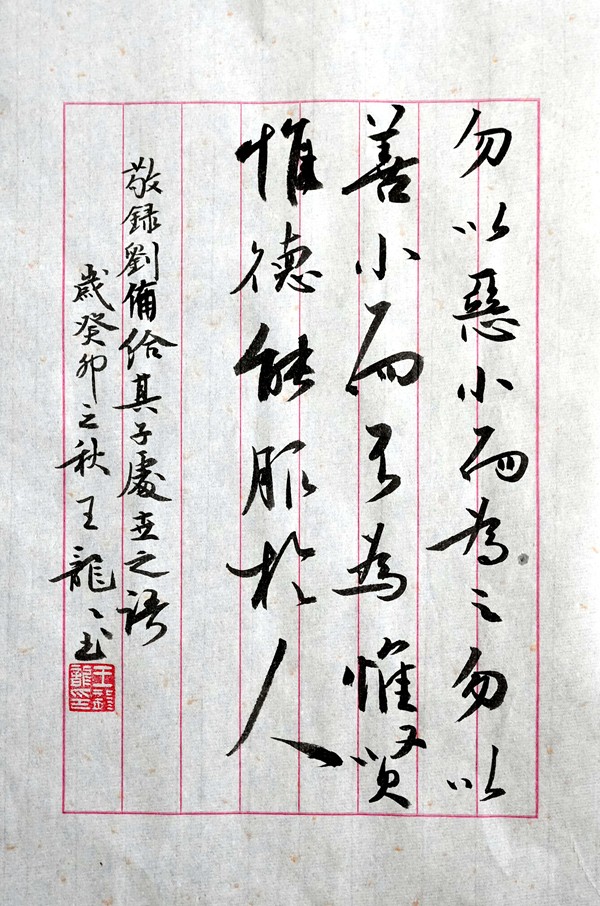 勿以惡小而為之勿以
善小而不為惟賢
惟德能服於人
敬録劉備給其子處世之語
歲癸卯之秋王龍〻书